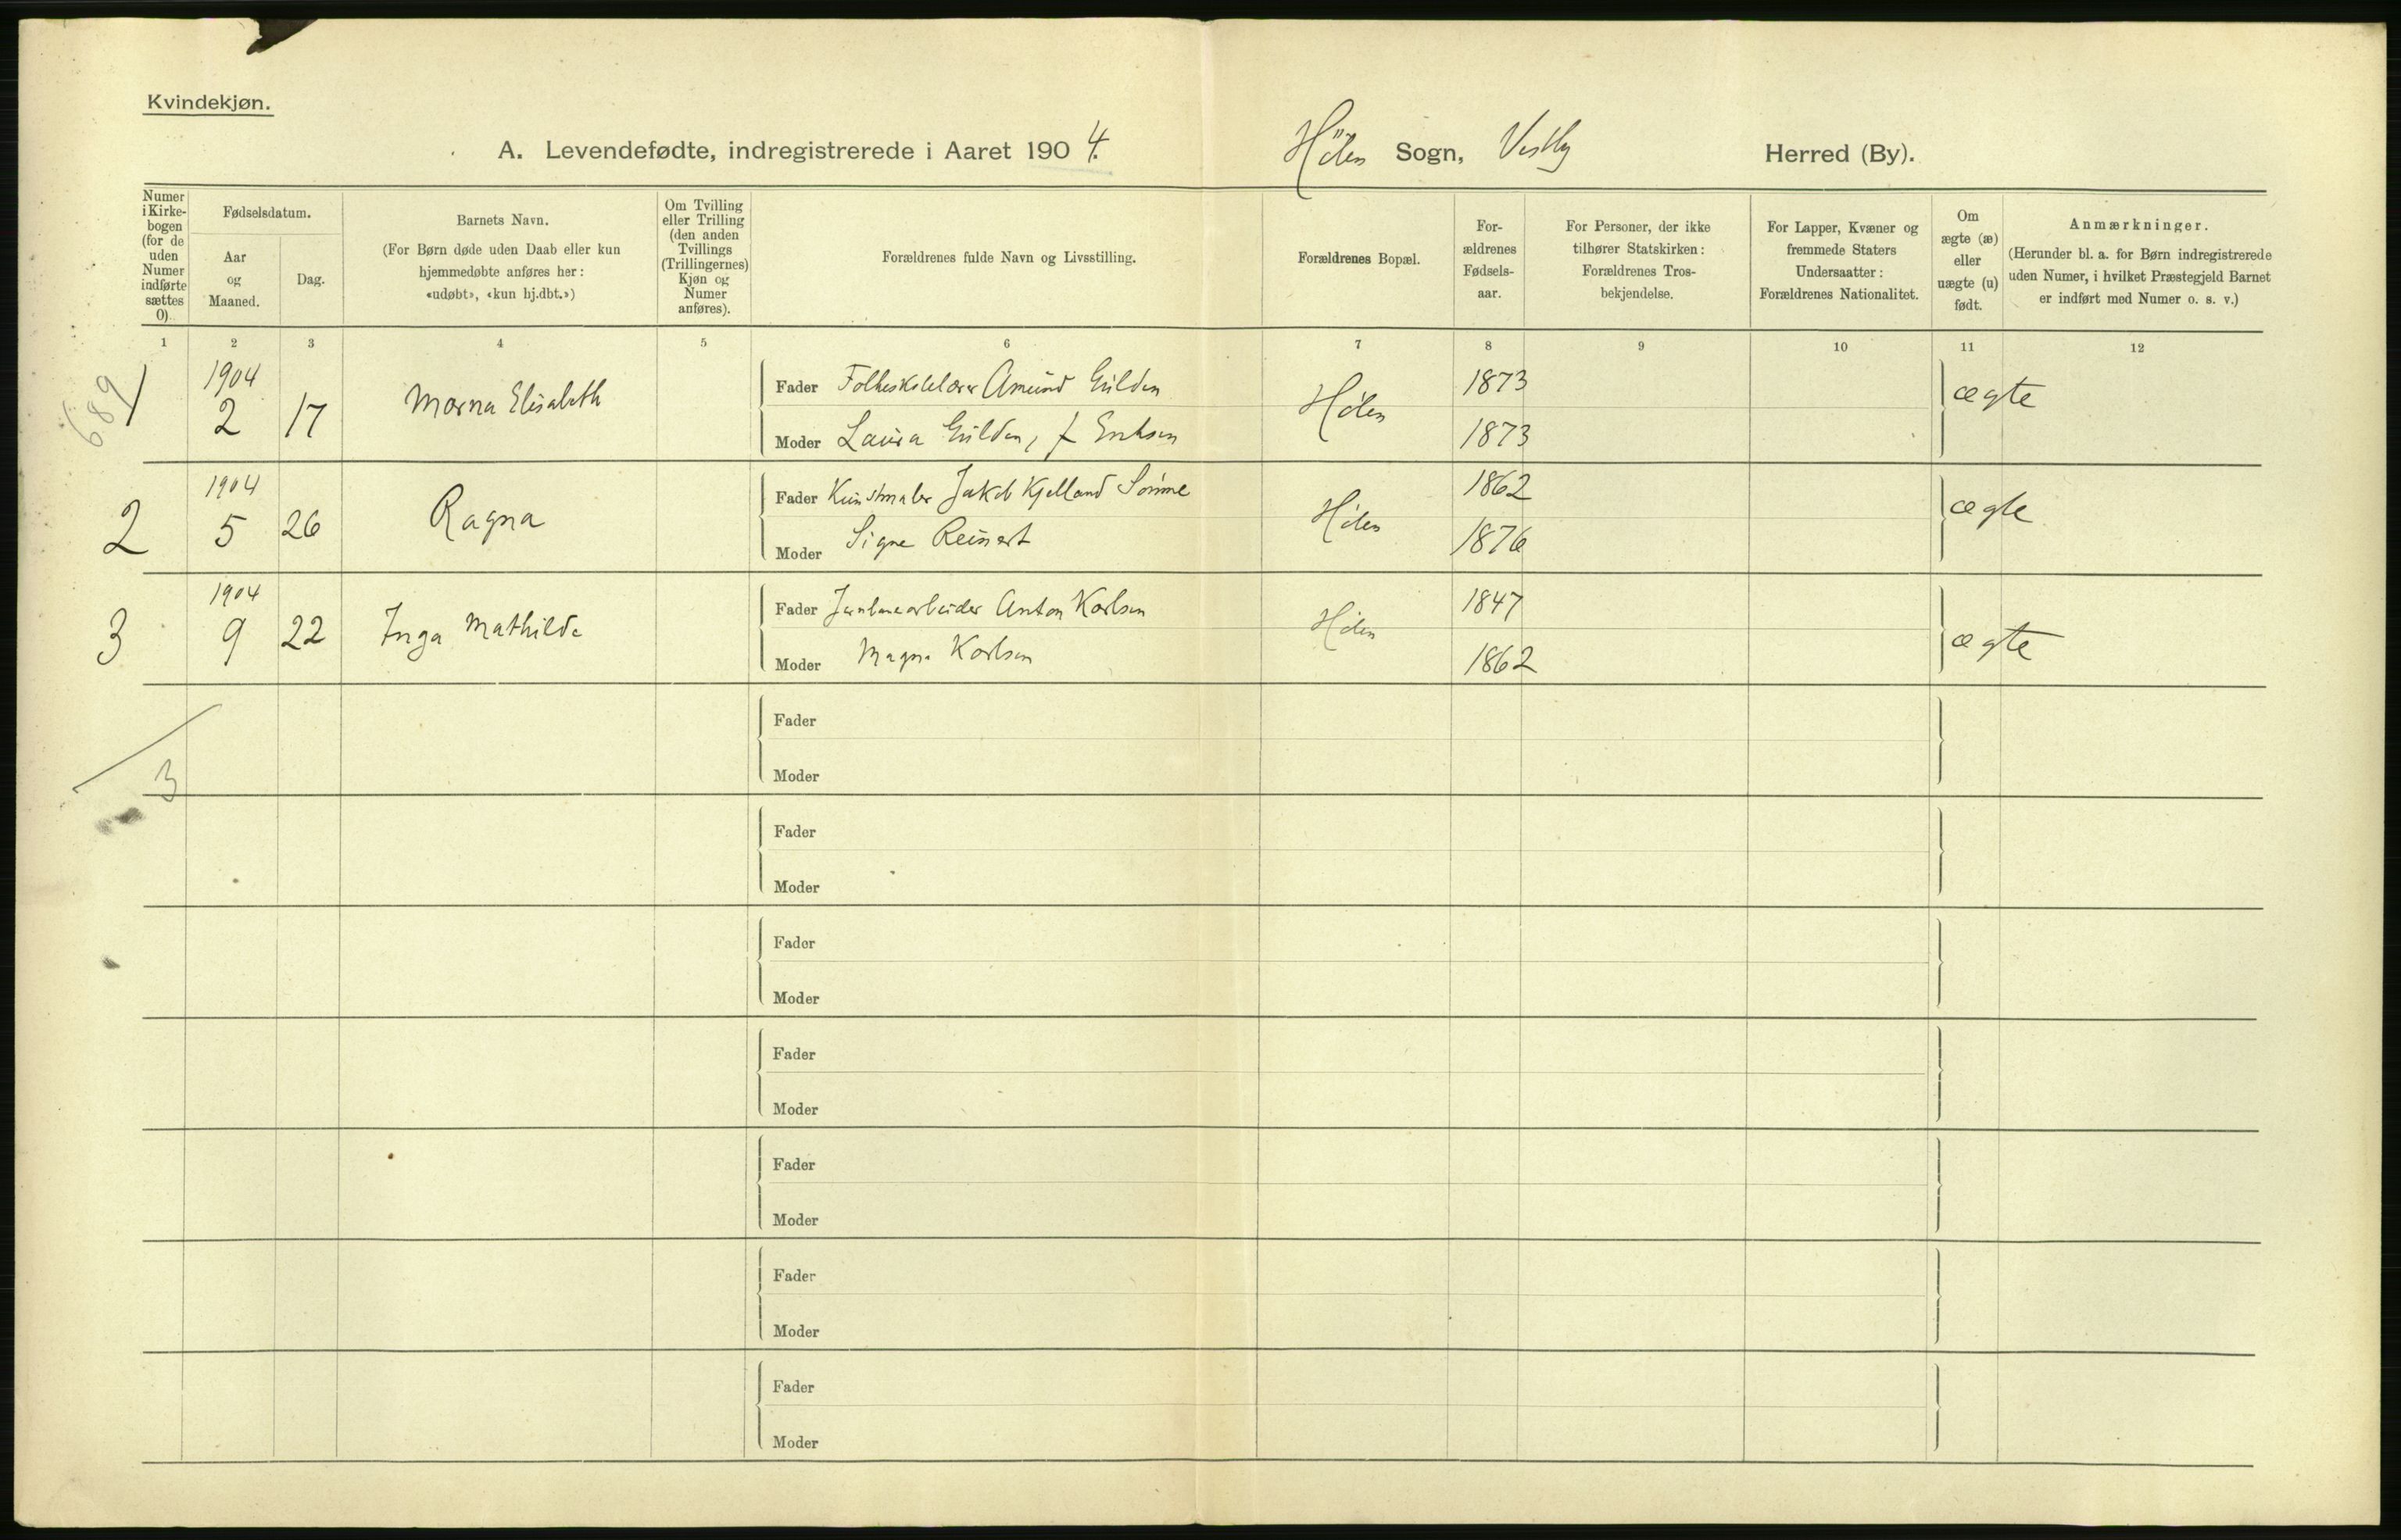 Kvindekjøn.
A. Levendefødte, indregistrerede i Aaret 1904. Hölen Sogn, Vestby Herred (By).
Numer i Kirkebogen (for de uden Numer indførte sættes 0)
Fødselsdatum.
Aar og Maaned.
Dag.
Barnets Navn.
(For Børn døde uden Daab eller kun
hjemmedøbte anføres her:
«udøbt», «kun hj.dbt.»)
Om Tvilling
eller Trilling
(den anden
Tvillings
(Trillingernes)
Kjøn og
Numer
anføres).
Forældrenes fulde Navn og Livsstilling.
Forældrenes Bopæl.
For-
ældrenes
Fødsels-
aar.
For Personer, der ikke
tilhører Statskirken:
Forældrenes Tros-
bekjendelse.
For Lapper, Kvæner og
fremmede Staters
Undersaatter:
Forældrenes Nationalitet.
Om
ægte (æ)
eller
uægte (u)
født.
Anmærkninger.
(Herunder bl. a. for Børn indregistrerede
uden Numer, i hvilket Præstegjeld Barnet
er indført med Numer o. s. v.)
1 2 3 4 5 6 7 8 9 10 11 12
689
1 1904 2 17 Morna Elisabeth Fader Folkeskolelærer Amund Gulden Hölen 1873 ægte
Moder Laura Gulden, f Eriksen 1873
2 1904 5 26 Ragna Fader Kunstmaler Jakob Kjelland Sömme Hölen 1862 ægte
Moder Signe Reinert 1876
3 1904 9 22 Inga Mathilde Fader Jernbanearbeider Anton Karlsen Hölen 1847 ægte
Moder Magna Karlsen 1862
3
Fader
Moder
Fader
Moder
Fader
Moder
Fader
Moder
Fader
Moder
Fader
Moder
Fader
Moder